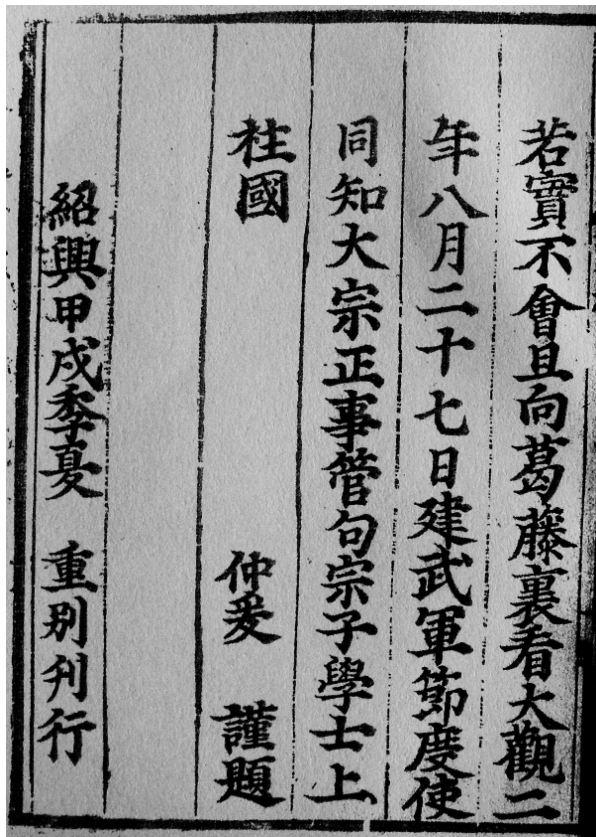 若實不會且向葛藤裏看大觀二
年八月二十七日建武軍節度使
同知大宗正事管句宗子學士上
柱國　仲爰　謹題
紹興甲戌季夏　重別刋行